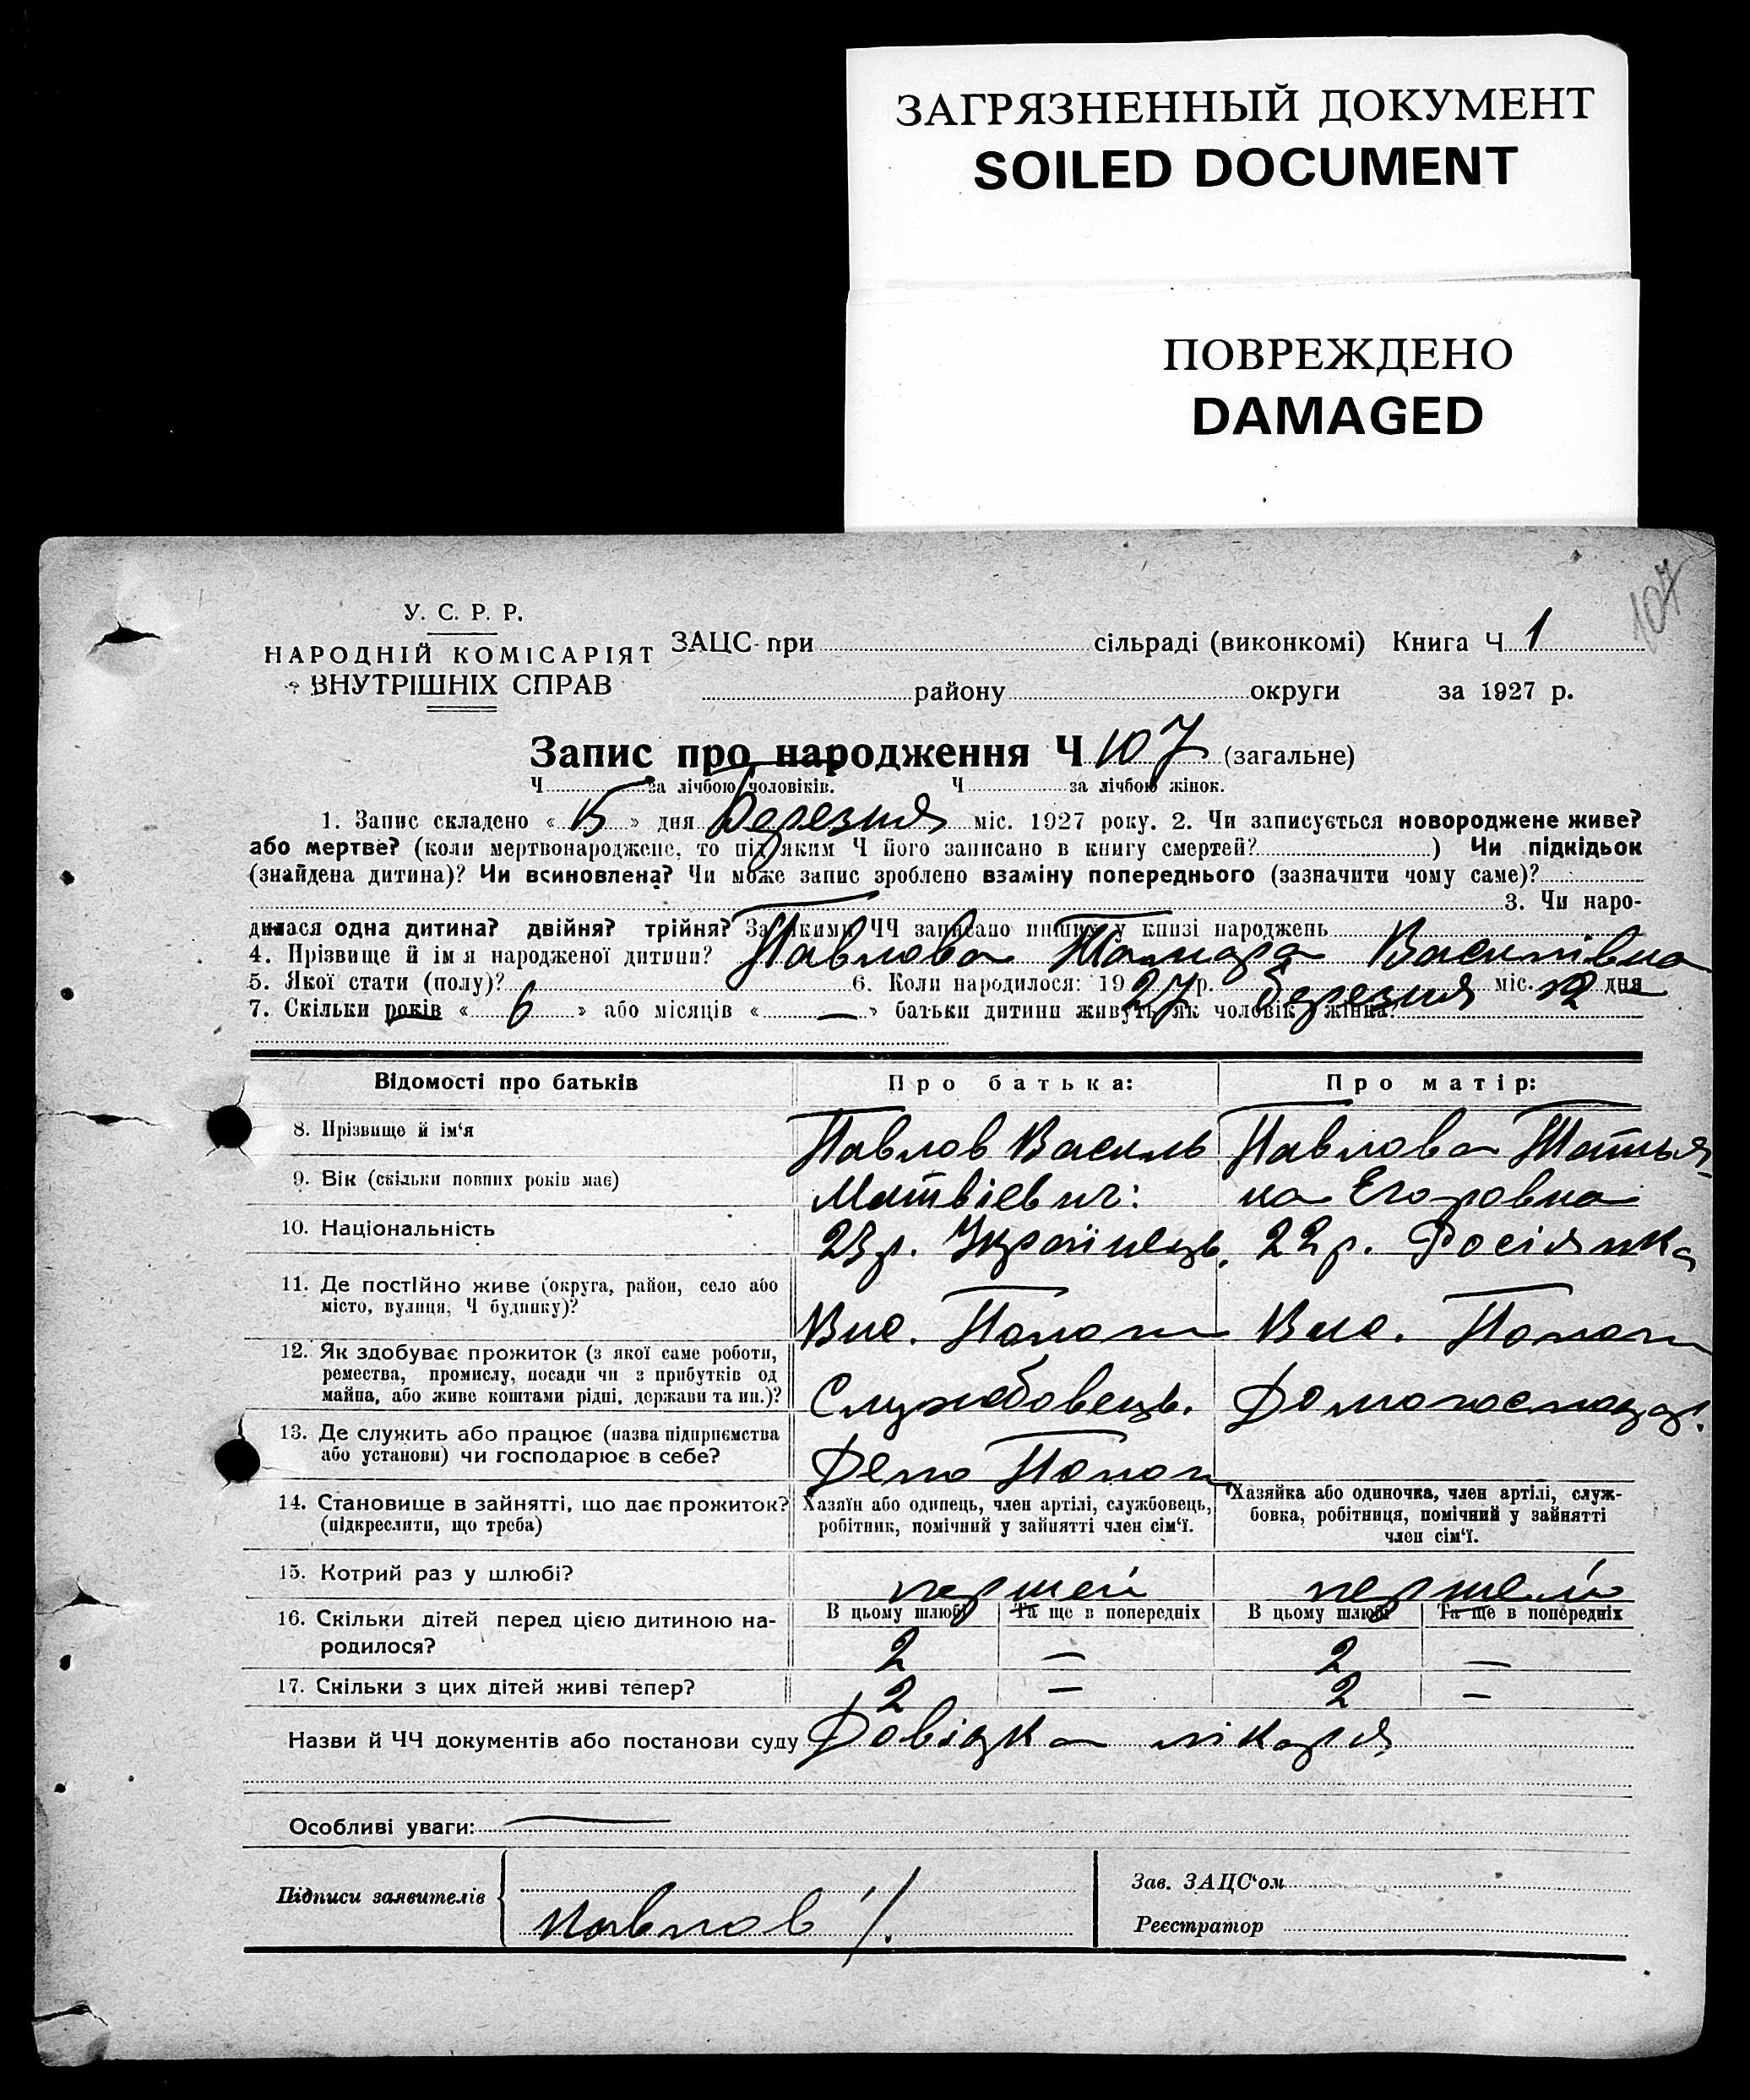 ЗАГРЯЗНЕННЫЙ ДОКУМЕНТ
SOILED DOCUMENT
ПОВРЕЖДЕНО
DAMAGED
107
У. С. Р. Р.
НАРОДНІЙ КОМІСАРІЯТ
ВНУТРІШНІХ СПРАВ
ЗАЦС при сільраді (виконкомі) Книга Ч 1
району округи за 1927 р.
Запис про народження Ч 107 (загальне)
Ч за лічбою чоловіків. Ч за лічбою жінок.
1. Запис складено « 15 » дня березня міс. 1927 року. 2. Чи записується новороджене живе?
або мертве? (коли мертвонароджене, то під яким Ч його записано в книгу смертей? ) Чи підкідьок
(знайдена дитина)? Чи всиновлена? Чи може запис зроблено взаміну попереднього (зазначити чому саме)?
3. Чи наро-
дилася одна дитина? двійня? трійня? За якими ЧЧ записано инших у книзі народжень
4. Прізвище й імя народженої дитини? Павлова Тамара Василівна
5. Якої стати (полу)? 6. Коли народилося: 1927 р. березня міс. 12 дня
7. Скільки років « 6 » або місяців « — » батьки дитини живуть як чоловік і жінка?
Відомості про батьків Про батька: Про матір:
8. Прізвище й ім'я Павлов Василь Павлова Татья-
9. Вік (скільки повних років має) Матвієвич: на Егоровна
10. Національність 23 р. Українець. 22 р. Росіянка
11. Де постійно живе (округа, район, село або
місто, вулиця, Ч будинку)?
12. Як здобуває прожиток (з якої саме роботи,
ремества, промислу, посади чи з прибутків од
майна, або живе коштами рідні, держави та ин.)? Службовець. Домогосподар.
13. Де служить або працює (назва підприємства
або установи) чи господарює в себе? Депо
14. Становище в зайнятті, що дає прожиток? Хазяїн або одинець, член артілі, службовець, Хазяйка або одиночка, член артілі, служ-
(підкреслити, що треба) робітник, помічний у зайнятті член сім'ї. бовка, робітниця, помічний у зайнятті
член сім'ї.
15. Котрий раз у шлюбі? першей першей
16. Скільки дітей перед цією дитиною на- В цьому шлюбі Та ще в попередніх В цьому шлюбі Та ще в попередніх
родилося? 2 — 2 —
17. Скільки з цих дітей живі тепер? 2 — 2 —
Назви й ЧЧ документів або постанови суду Довідка лікаря
Особливі уваги:
Підписи заявителів Зав. ЗАЦС'ом
Павлов Реєстратор